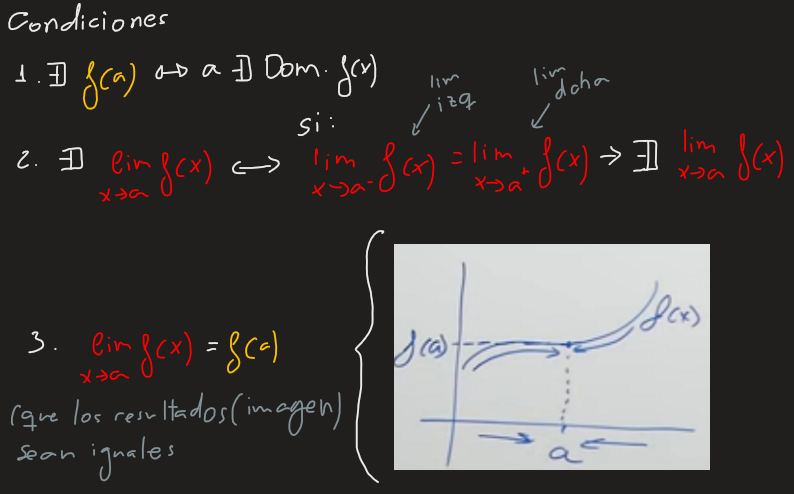 Condiciones
1. ∃ f(a) ⟷ a ∃ Dom. f(x)
lim izq
lim dcha
si:
2. ∃ lim x→a f(x) ⟷ lim x→a⁻ f(x) = lim x→a⁺ f(x) → ∃ lim x→a f(x)
3. lim x→a f(x) = f(a)
(que los resultados (imagen)
sean iguales
f(a)
f(x)
a